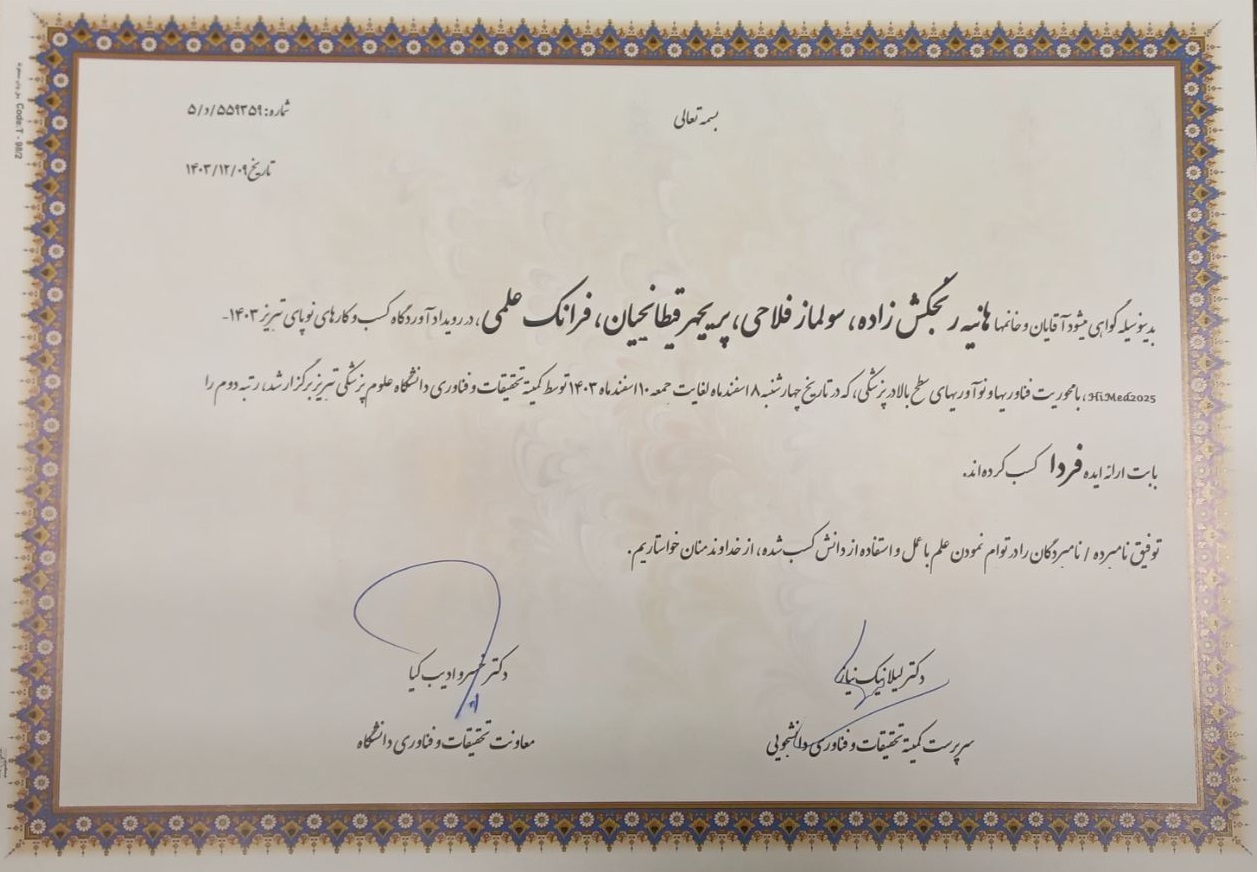 بسمه تعالی
شماره: ۵/د/۵۵۹۳۵۹
تاریخ ۱۴۰۳/۱۲/۰۹
بدینوسیله گواهی میشود آقایان و خانمها هانیه رنجکش زاده، سولماز فلاحی، پریچهر قیطانچیان، فرانک علمی، در رویداد آوردگاه کسب و کارهای نوپای تبریز ۱۴۰۳-
HiMed2025، با محوریت فناوریها و نوآوریهای سطح بالا در پزشکی، که در تاریخ چهارشنبه ۸ اسفند ماه لغایت جمعه ۱۰ اسفند ماه ۱۴۰۳ توسط کمیته تحقیقات و فناوری دانشگاه علوم پزشکی تبریز برگزار شد، رتبه دوم را
بابت ارائه ایده فردا کسب کرده‌اند.
توفیق نامبرده / نامبردگان را در توام نمودن علم با عمل و استفاده از دانش کسب شده، از خداوند منان خواستاریم.
دکتر لیلا نیک نیاز
سرپرست کمیته تحقیقات و فناوری دانشجویی
دکتر خسرو ادیب کیا
معاونت تحقیقات و فناوری دانشگاه
Code: T - 98/2